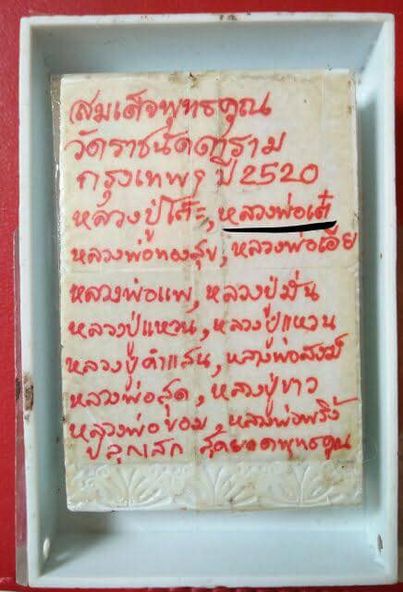 สมเด็จพุทธคุณ
วัดราชนัดดาราม
กรุงเทพฯ ปี 2520
หลวงปู่โต๊ะ, หลวงพ่อเต๋
หลวงพ่อทองสุข, หลวงพ่อเอีย
หลวงพ่อแพ, หลวงปู่มั่น
หลวงปู่แหวน, หลวงปู่แหวน
หลวงปู่คำแสน, หลวงพ่อสงฆ์
หลวงพ่อสุด, หลวงปู่ขาว
หลวงพ่อขอม, หลวงพ่อพริ้ง
ปลุกเสก สุดยอดพุทธคูน